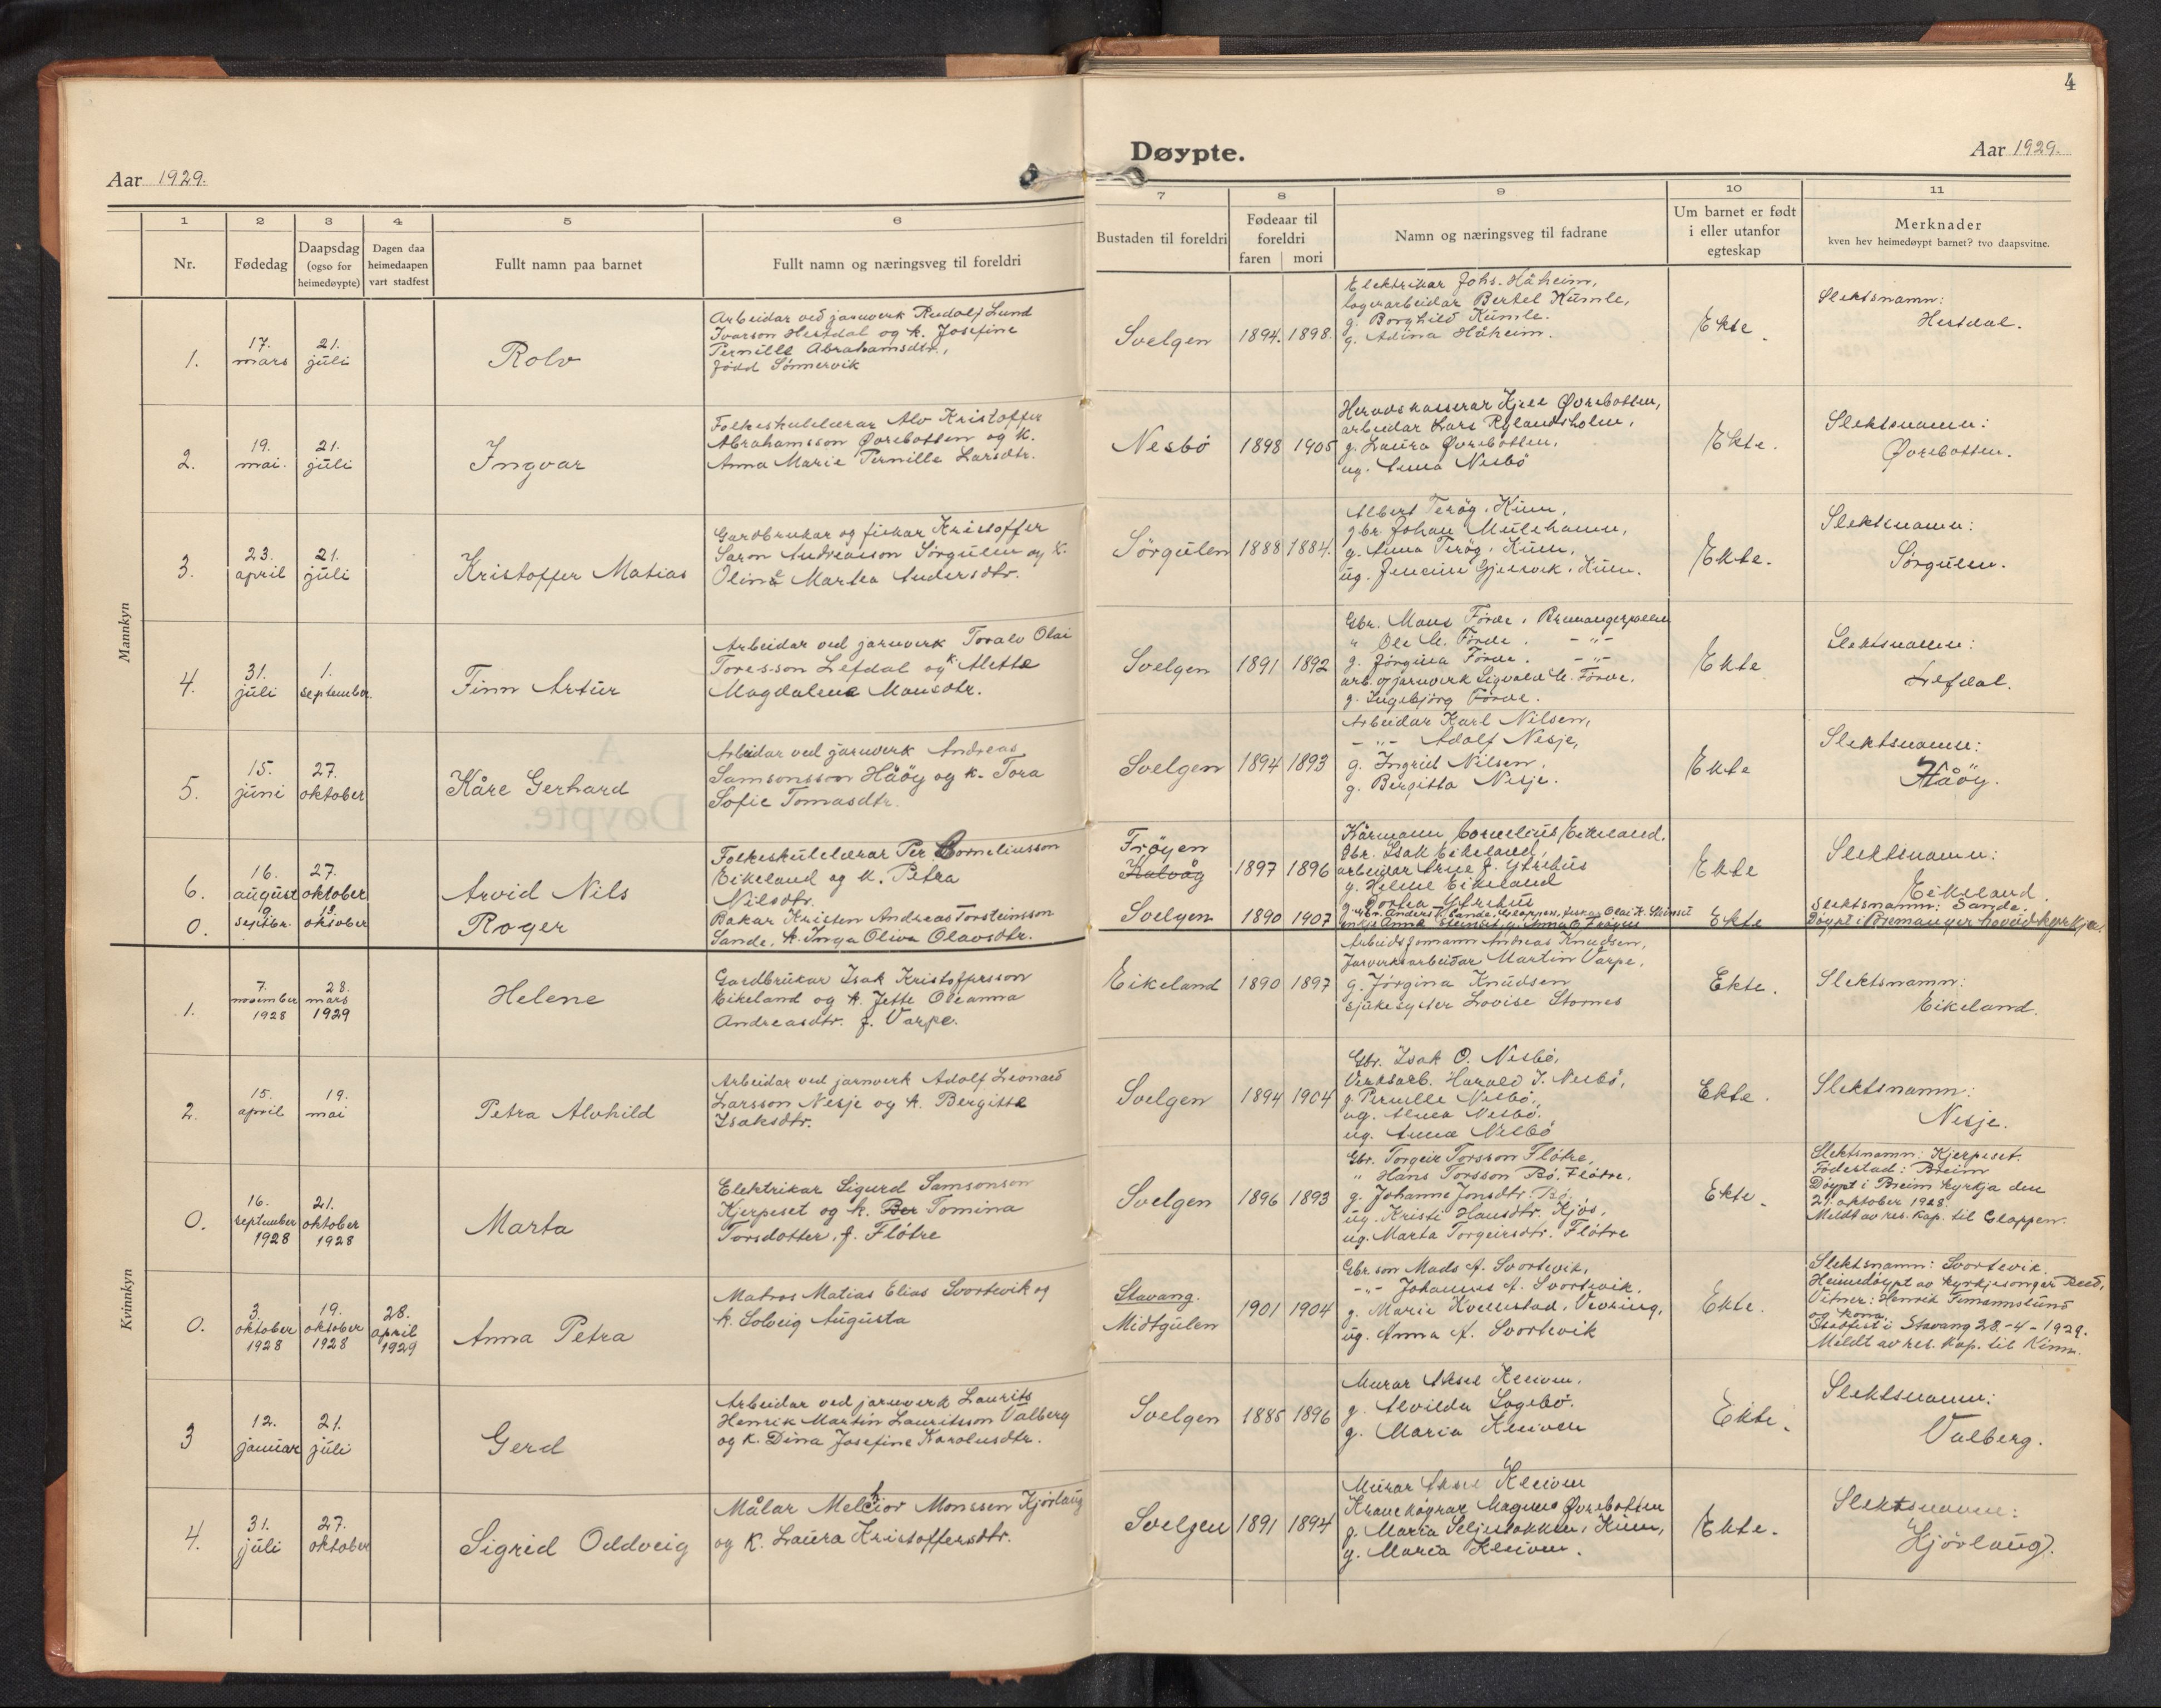 4
Døypte.
Aar 1929.
Aar 1929.
1 2 3 4 5 6
7 8 9 10 11
Nr.
Fødedag
Daapsdag
(ogso for
heimedøypte)
Dagen daa
heimedaapen
vart stadfest
Fullt namn paa barnet
Fullt namn og næringsveg til foreldri
Bustaden til foreldri
Fødeaar til
foreldri
faren mori
Namn og næringsveg til fadrane
Um barnet er født
i eller utanfor
egteskap
Merknader
kven hev heimedøypt barnet? tvo daapsvitne.
Mannkyn
1.
17.
mars
21.
juli
Rolv
Arbeidar ved jarnverk Rudolf Lund
Ivarson Hestdal og k. Josefine
Pernille Abrahamsdtr.,
född Sönnervik
Svelgen
1894. 1898.
Elektrikar Johs. Håheim,
lagerarbeidar Bertel Kumle,
g. Borghild Kumle.
g. Adina Håheim.
Ekte.
Slektsnamn:
Hestdal.
2.
19.
mai.
21.
juli
Ingvar
Folkeskulelærar Alv Kristoffer
Abrahamsson Øvrebotten og k.
Anna Marie Pernille Larsdtr.
Nesbö
1898 1905
Heradskasserar Kjell Øvrebotten,
arbeidar Lars Rylandsholm,
g. Laura Øvrebotten,
ug. Anna Nesbö
Ekte.
Slektsnamn:
Øvrebotten.
3.
23.
april
21.
juli
Kristoffer Matias
Gardbrukar og fiskar Kristoffer
Saron Andreasson Sörgulen og k.
Oline Martea Andersdtr.
Sörgulen
1888 1884.
Albert Teröy, Kinn,
gbr. Johan Mulehamn,
g. Anna Teröy, Kinn,
ug. Jensine Gjelsvik, Kinn.
Ekte.
Slektsnamn:
Sörgulen.
4.
31.
juli
1.
september.
Finn Artur
Arbeidar ved jarnverk Toralv Olai
Tores-son Lefdal og k. Alette
Magdalene Monsdtr.
Svelgen
1891 1892
Gbr. Mons Förde, Bremangerpollen
" Ole M. Förde. -"-
g. Jörgina Förde. -"-
arb. v/jarnverk Sigvald M. Förde.
g. Ingebjörg Förde.
Ekte
Slektsnamn:
Lefdal.
5.
15.
juni
27.
oktober
Kåre Gerhard
Arbeidar ved jarnverk Andreas
Samsonsson Håöy og k. Tora
Sofie Tomasdtr.
Svelgen
1894 1893
Arbeidar Karl Nilsen,
-"- Adolf Nesje,
g. Ingrid Nilsen,
g. Bergitta Nesje.
Ekte
Slektsnamn:
Håöy.
6.
16.
august
27.
oktober
Arvid Nils
Folkeskulelærar Per Corneliusson
Eikeland og k. Petra
Nilsdtr.
Fröyen
Kalvåg
1897 1896
Kårmann Cornelius Eikeland.
Gbr. Isak Eikeland,
arbeidar Arne J. Ytrehus
g. Helene Eikeland
g. Dortea Ytrehus
Ekte
Slektsnamn:
Eikeland.
0.
9.
septbr.
13.
oktober
Roger
Bakar Kristen Andreas Torsteinsson
Sande, k. Inga Oliva Olavsdtr.
Svelgen
1890 1907
Ekte
Slektsnamn: Sande.
Döypt i Bremanger hovudkyrkja.
Kvinnkyn
1.
7.
november
1928
28.
mars
1929
Helene
Gardbrukar Isak Kristoffersson
Eikeland og k. Jette Oveanna
Andreasdtr. f. Varpe.
Eikeland
1890 1897
Arbeidsformann Andreas Knudsen,
Jarverksarbeidar Martin Varpe,
g. Jörgina Knudsen
sjukesyster Lovise Stornes
Ekte.
Slektsnamn:
Eikeland.
2.
15.
april
19.
mai
Petra Alvhild
Arbeidar ved jarnverk Adolf Leonard
Larsson Nesje og k. Bergitte
Isaksdtr.
Svelgen
1894 1904
Gbr. Isak O. Nesbö,
Verksarb. Harald I. Nesbö,
g. Pernille Nesbö,
ug. Nesbö.
ug. Anna Nesbö
Ekte.
Slektsnamn:
Nesje.
0.
16.
september
1928
21.
oktober
1928
Marta
Elektrikar Sigurd Samsonson
Kjerpeset og k. Ber Tomina
Torsdotter, f. Flötre
Svelgen
1896 1893
Gbr. Torgeir Torsson Flötre,
" Hans Torsson Bö, Flötre.
g. Johanne Jonsdtr. Bö.
ug. Kristi Hansdtr. Kjös.
ug. Marta Torgeirsdtr. Flötre
Ekte.
Slektsnamn: Kjerpeset.
Födestad: Breim
Döypt i Breim kyrkja den
21. oktober 1928.
Meldt av res. kap. til Gloppen.
0.
3.
oktober
1928
19.
oktober
1928
28.
april
1929
Anna Petra
Matros Matias Elias Svortevik og
k. Solveig Augusta
Stavang.
Midtgulen
1901 1904
Gbr. son Mads A. Svortevik,
-"- Johannes A. Svortevik,
g. Marie Kvellestad, Vevring,
ug. Anna A. Svortevik
Ekte.
Slektsnamn: Svortevik
Heimedöypt av kyrkjesongar
Vitner: Henrik Timannslund
og kona.
Stadfest i Stavang 28.-4-1929.
Meldt av res. kap. til Kinn.
3
12.
januar
21.
juli
Gerd
Arbeidar ved jarnverk Laurits
Henrik Martin Lauritsson Valberg
og k. Dina Josefine Karolusdtr.
Svelgen
1885 1896
Murar Aksel Kleiven.
g. Alvilda Sagebö.
g. Maria Kleiven
Ekte.
Slektsnamn:
Valberg.
4.
31.
juli
27.
oktober
Sigrid Oddveig
Målar Melchior Monssen Kjörlaug
og k. Laura Kristoffersdtr.
Svelgen
1891 1894
Murar Aksel Kleiven
Kranekøyrar Magnus Øvrebotten
g. Maria Seljesokken, Kinn,
g. Maria Kleiven.
Ekte.
Slektsnamn:
Kjörlaug.